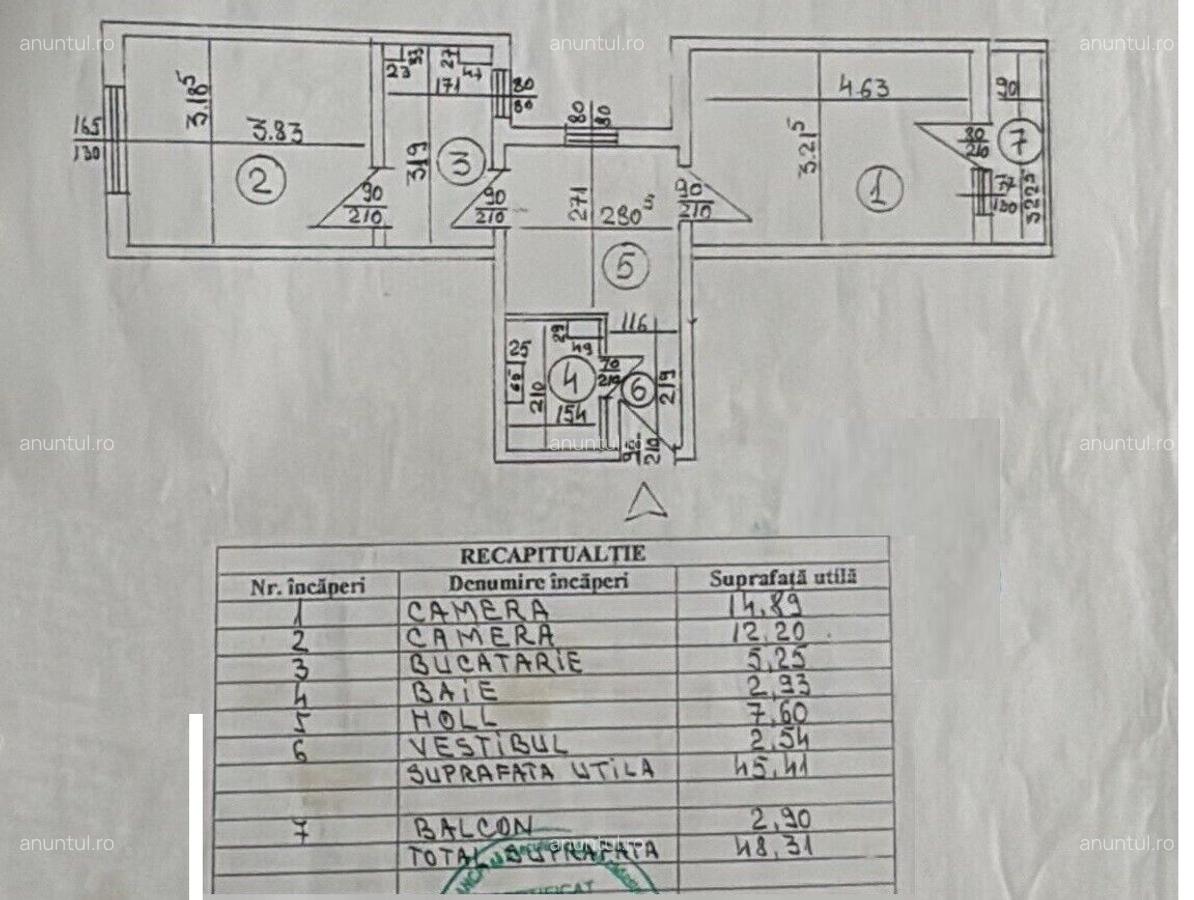 anuntul.ro anuntul.ro anuntul.ro
165
130
3.18⁵
3.83
2
90
210
23
33
171
27
47
80
80
319
3
90
210
80
80
271
280⁵
5
90
210
4.63
3.21⁵
1
90
80
210
7
130
3.225
25
65
210
29
49
4
154
70
210
116
6
219
210
anuntul.ro anuntul.ro anuntul.ro
RECAPITUALTIE
Nr. încăperi Denumire încăperi Suprafață utilă
1 CAMERA 14,89
2 CAMERA 12,20
3 BUCATARIE 5,25
4 BAIE 2,93
5 HOLL 7,60
6 VESTIBUL 2,54
SUPRAFATA UTILA 45,41
7 BALCON 2,90
TOTAL SUPRAFATA 48,31
anuntul.ro anuntul.ro anuntul.ro